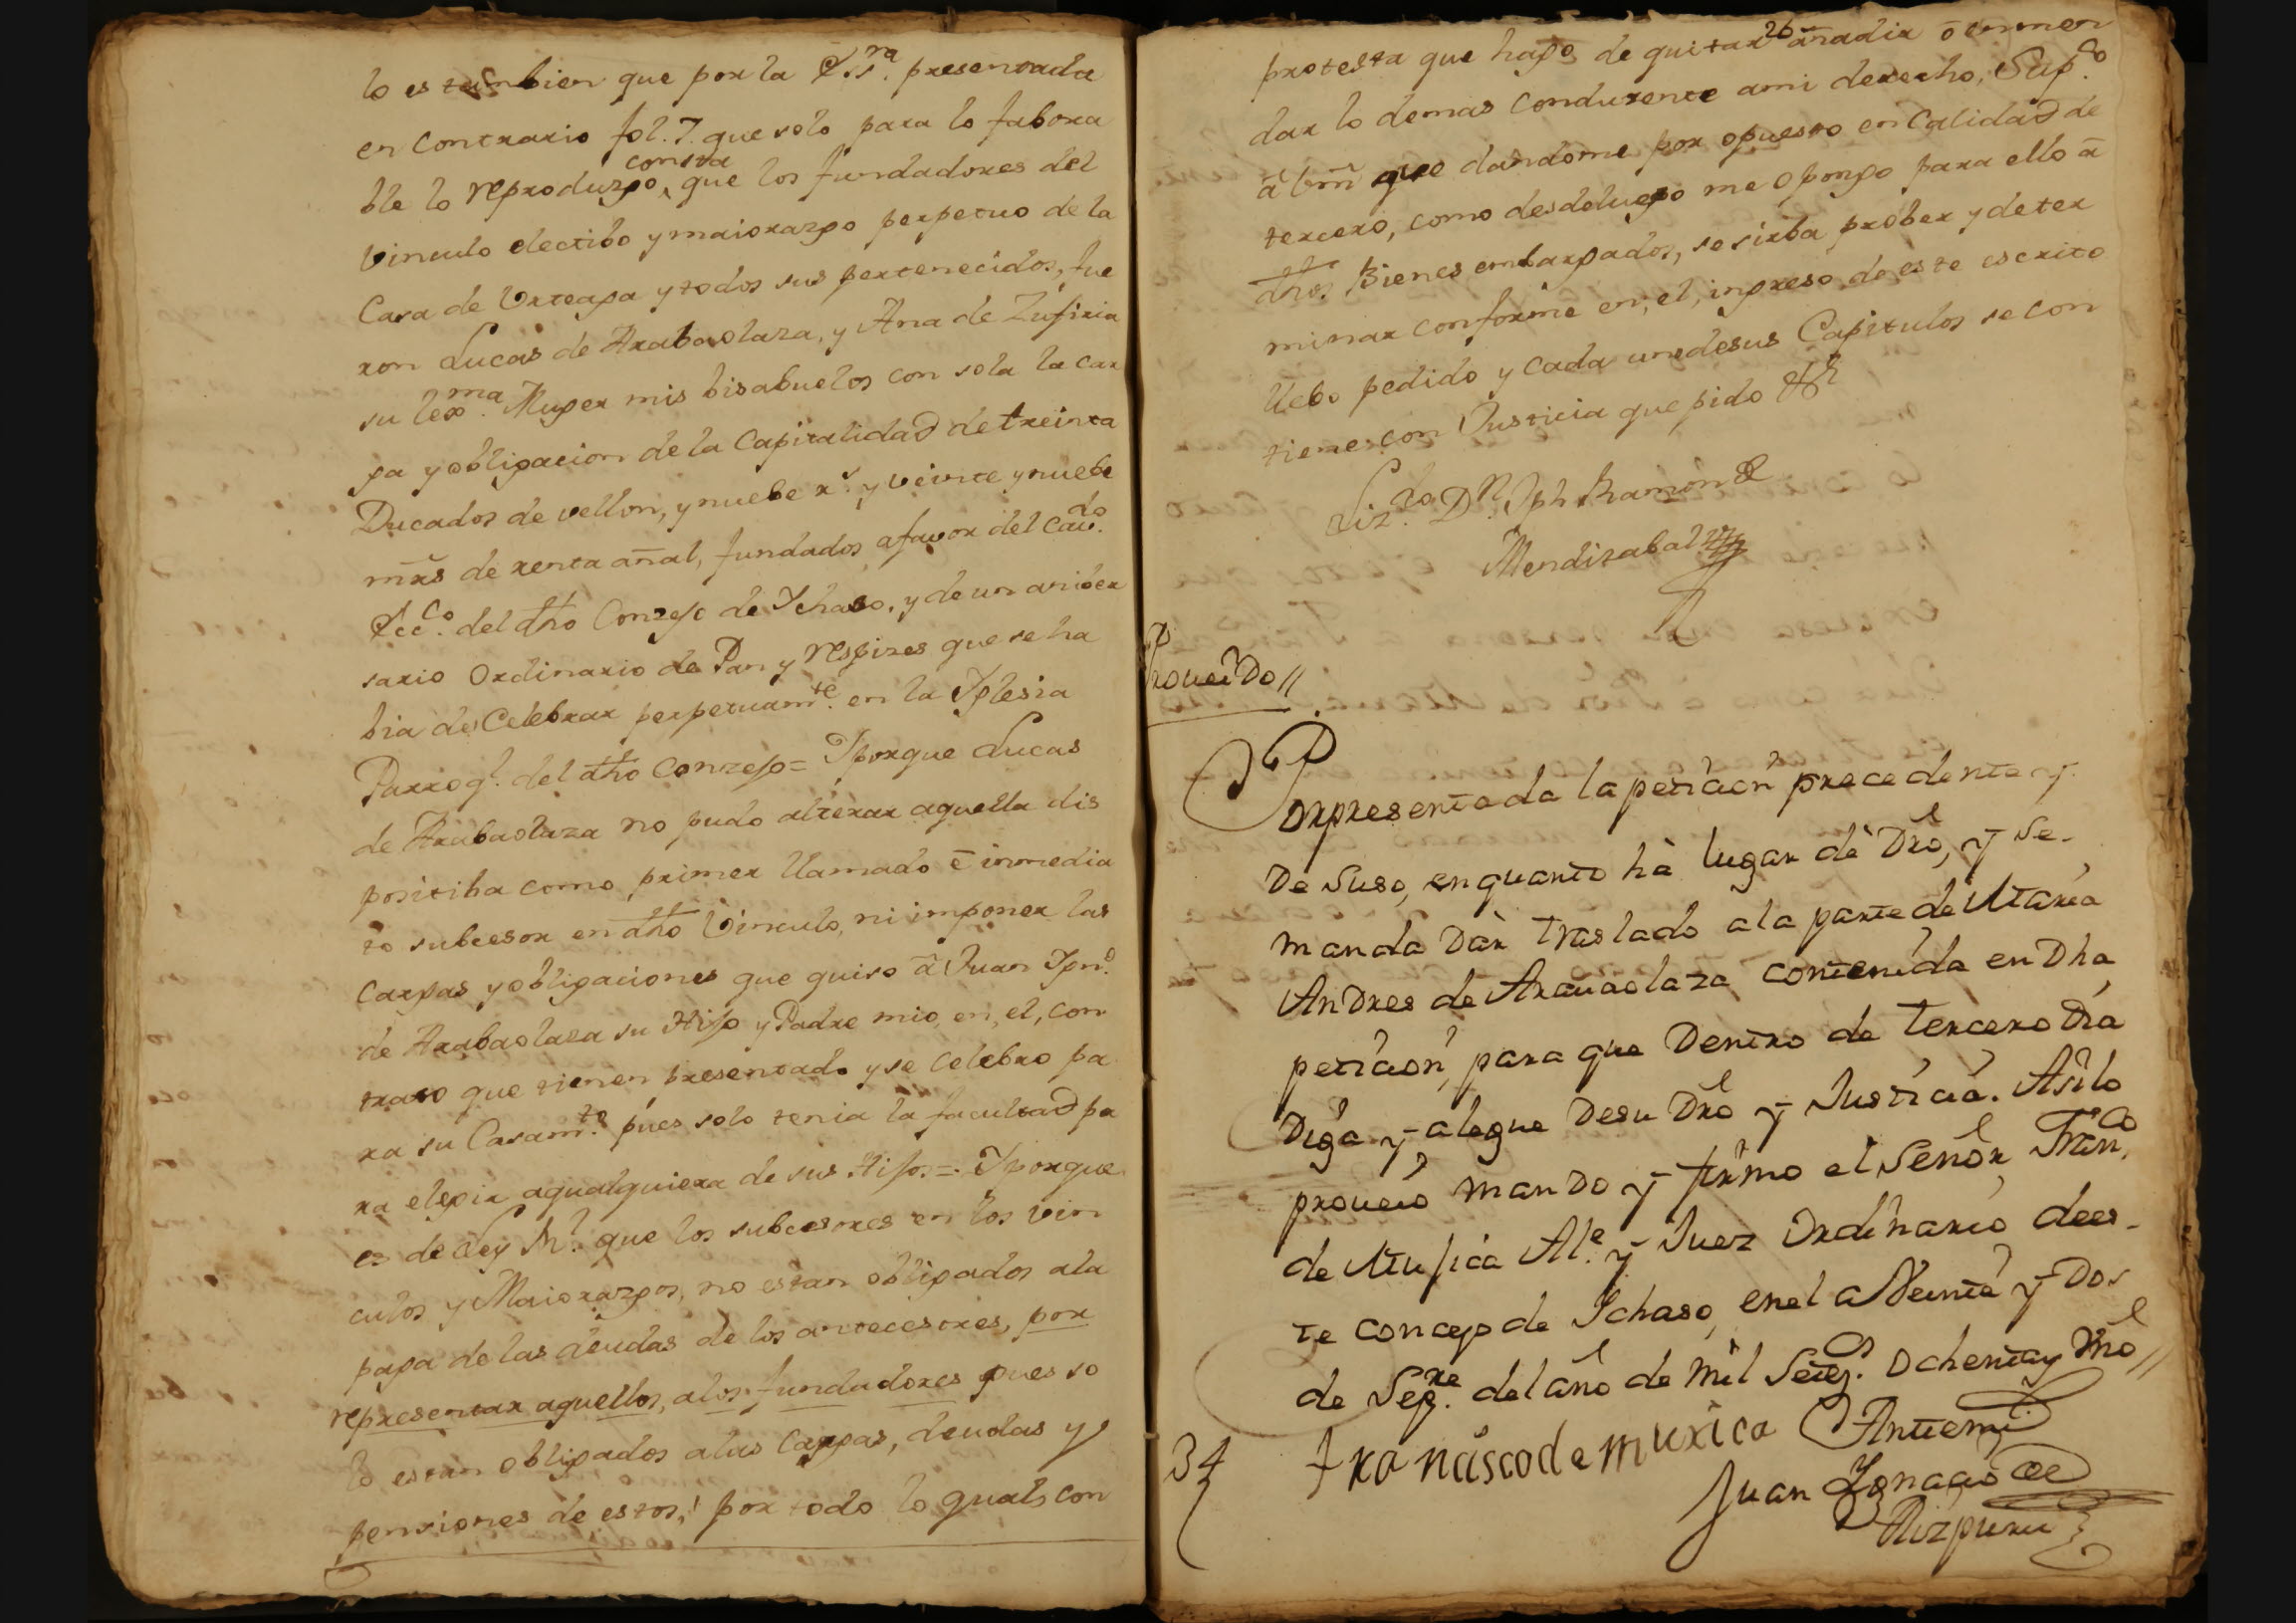 lo es tambien que por la Essra. presentada
en contrario fol. 7. que solo para lo fabora
consta
ble lo reproduzgo, que los fundadores del
Vinculo electibo y maiorazgo perpetuo de la
Casa de Urteaga y todos sus pertenecidos, fue
ron Lucas de Arabaolaza, y Ana de Zufiria
su lexma. Muger mis bisabuelos con sola la car
ga y obligacion de la Capitalidad de treinta
Ducados de vellon, y nuebe rs. y veinte y nuebe
mrs de renta añal, fundados a favor del Cavdo.
Ecco. del dho Conzejo de Ychaso, y de un aniber
sario Ordinario de Pan y respizes que se ha
bia de Celebrar perpetuamte. en la Yglesia
Parroql. del dho Conzejo = Yporque Lucas
de Arabaolaza no pudo alterar aquella dis
positiba como primer llamado è inmedia
to subcesor en dho Vinculo, ni imponer las
cargas y obligaciones que quiso â Juan Ygno.
de Arabaolaza su Hijo y Padre mio, en, el, con
trato que tienen presentado y se celebro pa
ra su Casamto. pues solo tenia la facultad pa
ra elegir aqualquiera de sus Hijos = Yporque
es de Ley Rl. que los subcesores en los vin
culos y Maiorazgos, no estan obligados ala
paga de las deudas de los antecesores, por
representar aquellos, alos fundadores pues so
lo estan obligados alas cargas, deudas y
pensiones de estos, por todo lo qual, con
26
protesta que hago de quitar añadir ô enmen
dar lo demas conducente ami derecho, Supco.
â Vm que dandome por opuesto en Calidad de
tercero, como desdeluego me opongo para ello â
dhos Bienes embargados, se sirba prober y deter
minar conforme en, el, ingreso de este escrito
llebo pedido y cada uno desus Capitulos se con
tiene con Justicia que pido &a
Lizdo. Dn. Jph Ramon de
Mendizabal
Proueido //
Por presentada la peticion precedente y
De Suso, en quanto hà lugar dè Dro, y se
manda Dar traslado ala parte de Maria
Andres de Arauaolaza contenida en Dha
peticion, para que Dentro de tercero Dia
Diga y alegue Desu Dro y Justicia. Asilo
proueio mando y firmo el Señor Franco.
de Mujica Ale. y Juez Ordinario dees
te concejo de Ichaso, en el a Veinte y Dos
de Sepre. del año de mil Setezs. ochentay Vno //
34 Franáscode muxica Antemi
Juan Ignacio de
Aizpuru